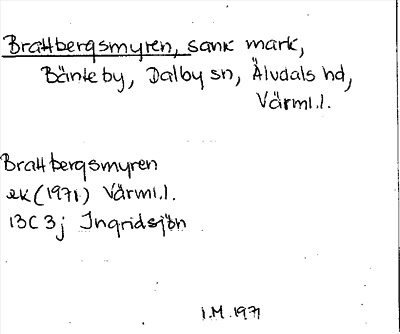 Brattbergsmyren, sank mark,
Bänteby, Dalby sn, Älvdals hd,
Värml.l.
Brattbergsmyren
ek (1971) Värml.l.
13C 3j Ingridsjön
I.M. 1971